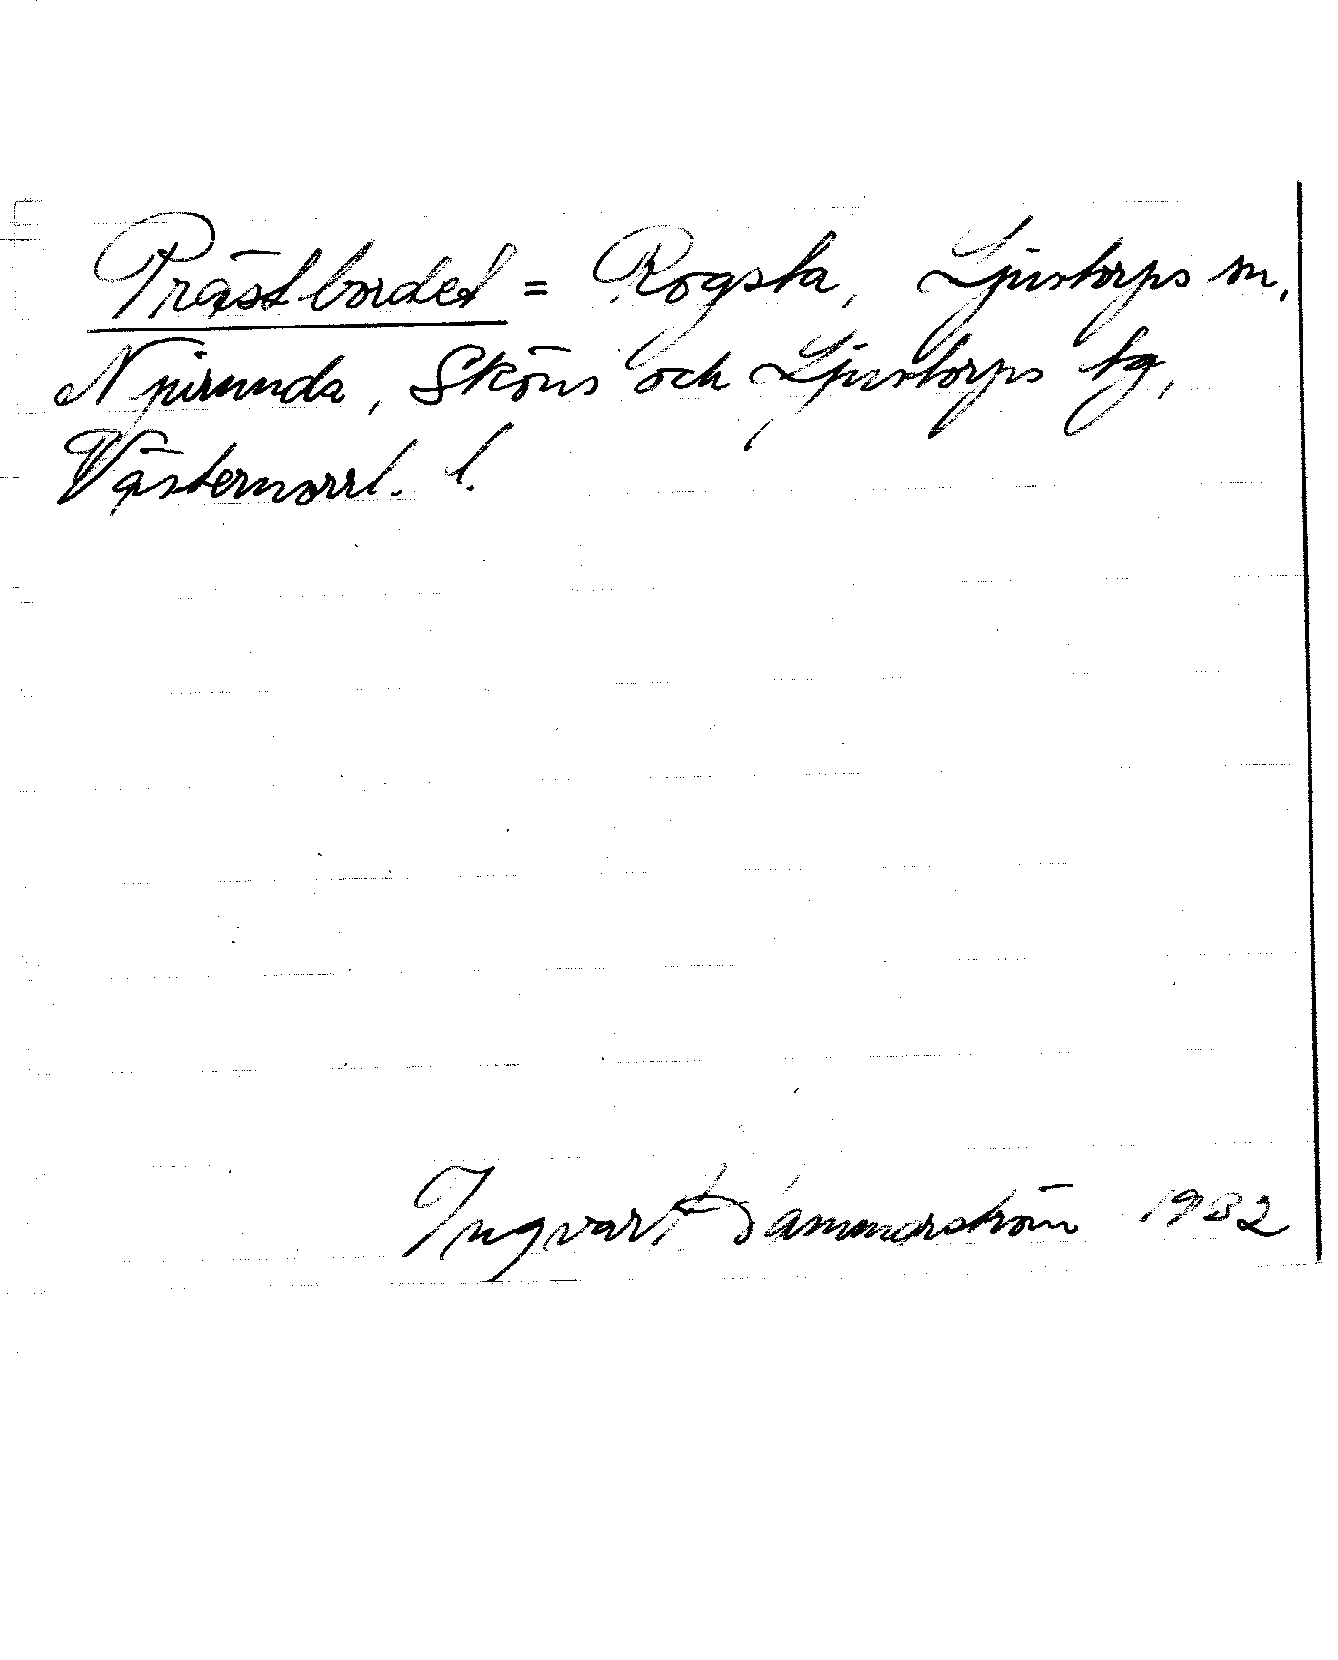 Prästbordet = Rogsta, Ljustorps sn,
Njurunda, Sköns och Ljustorps tg,
Västernorrl. l.
Ingvar Dammerström 1982